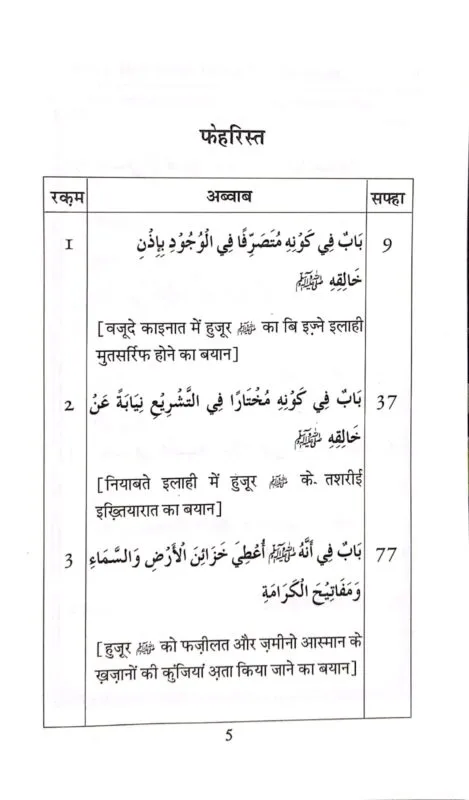 फेहरिस्त
रक़म अब्वाब सफ्हा
1 بَابٌ فِي كَوْنِهِ مُتَصَرِّفًا فِي الْوُجُوْدِ بِإِذْنِ 9
خَالِقِهِ ﷺ
[वजूदे काइनात में हुज़ूर ﷺ का बि इज़्ने इलाही
मुतसर्रिफ होने का बयान]
2 بَابٌ فِي كَوْنِهِ مُخْتَارًا فِي التَّشْرِيْعِ نِيَابَةً عَنْ 37
خَالِقِهِ ﷺ
[नियाबते इलाही में हुज़ूर ﷺ के. तशरीई
इख़्तियारात का बयान]
3 بَابٌ فِي أَنَّهُ ﷺ أُعْطِيَ خَزَائِنَ الْأَرْضِ وَالسَّمَاءِ 77
وَمَفَاتِيْحَ الْكَرَامَةِ
[हुज़ूर ﷺ को फज़ीलत और ज़मीनो आस्मान के
ख़ज़ानों की कुंजियां अ़ता किया जाने का बयान]
5